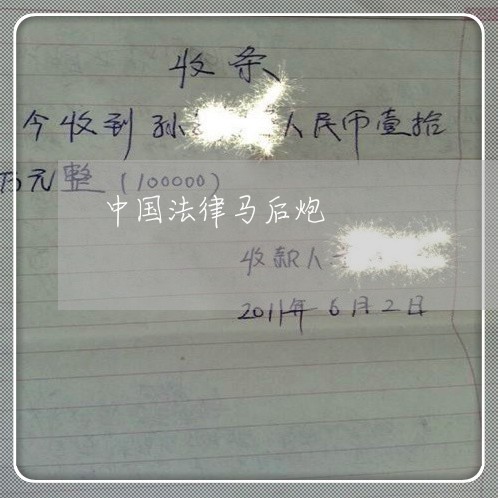 收条
今收到孙 人民币壹拾
万元整（100000）
中国法律马后炮
收款人
2011年6月2日